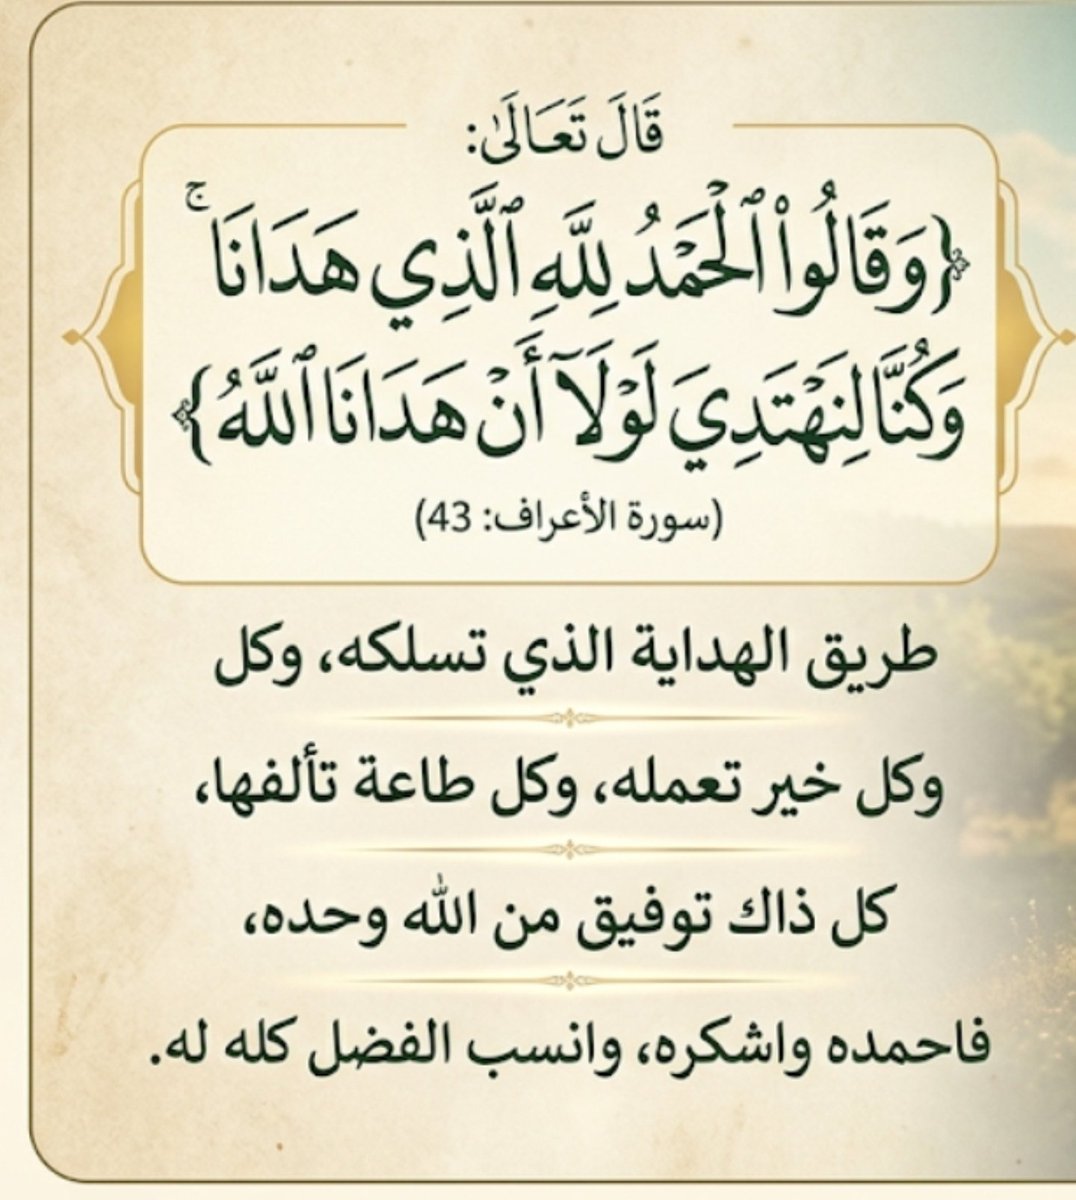 قَالَ تَعَالَىٰ:
﴿وَقَالُوا۟ ٱلْحَمْدُ لِلَّهِ ٱلَّذِي هَدَانَا ۚ
وَكُنَّا لِنَهْتَدِيَ لَوْلَآ أَنْ هَدَانَا ٱللَّهُ﴾
(سورة الأعراف: 43)
طريق الهداية الذي تسلكه، وكل
وكل خير تعمله، وكل طاعة تألفها،
كل ذاك توفيق من الله وحده،
فاحمده واشكره، وانسب الفضل كله له.